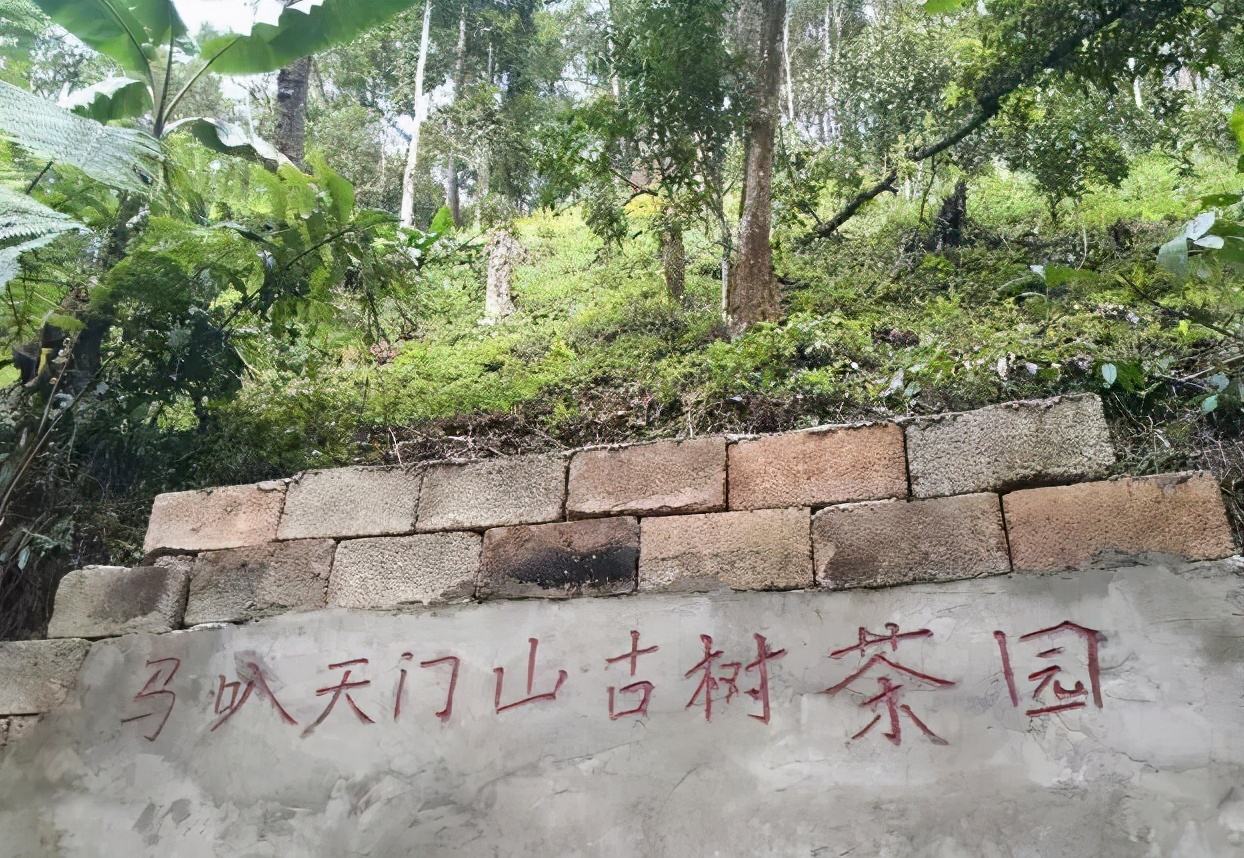 马叭天门山古树茶园